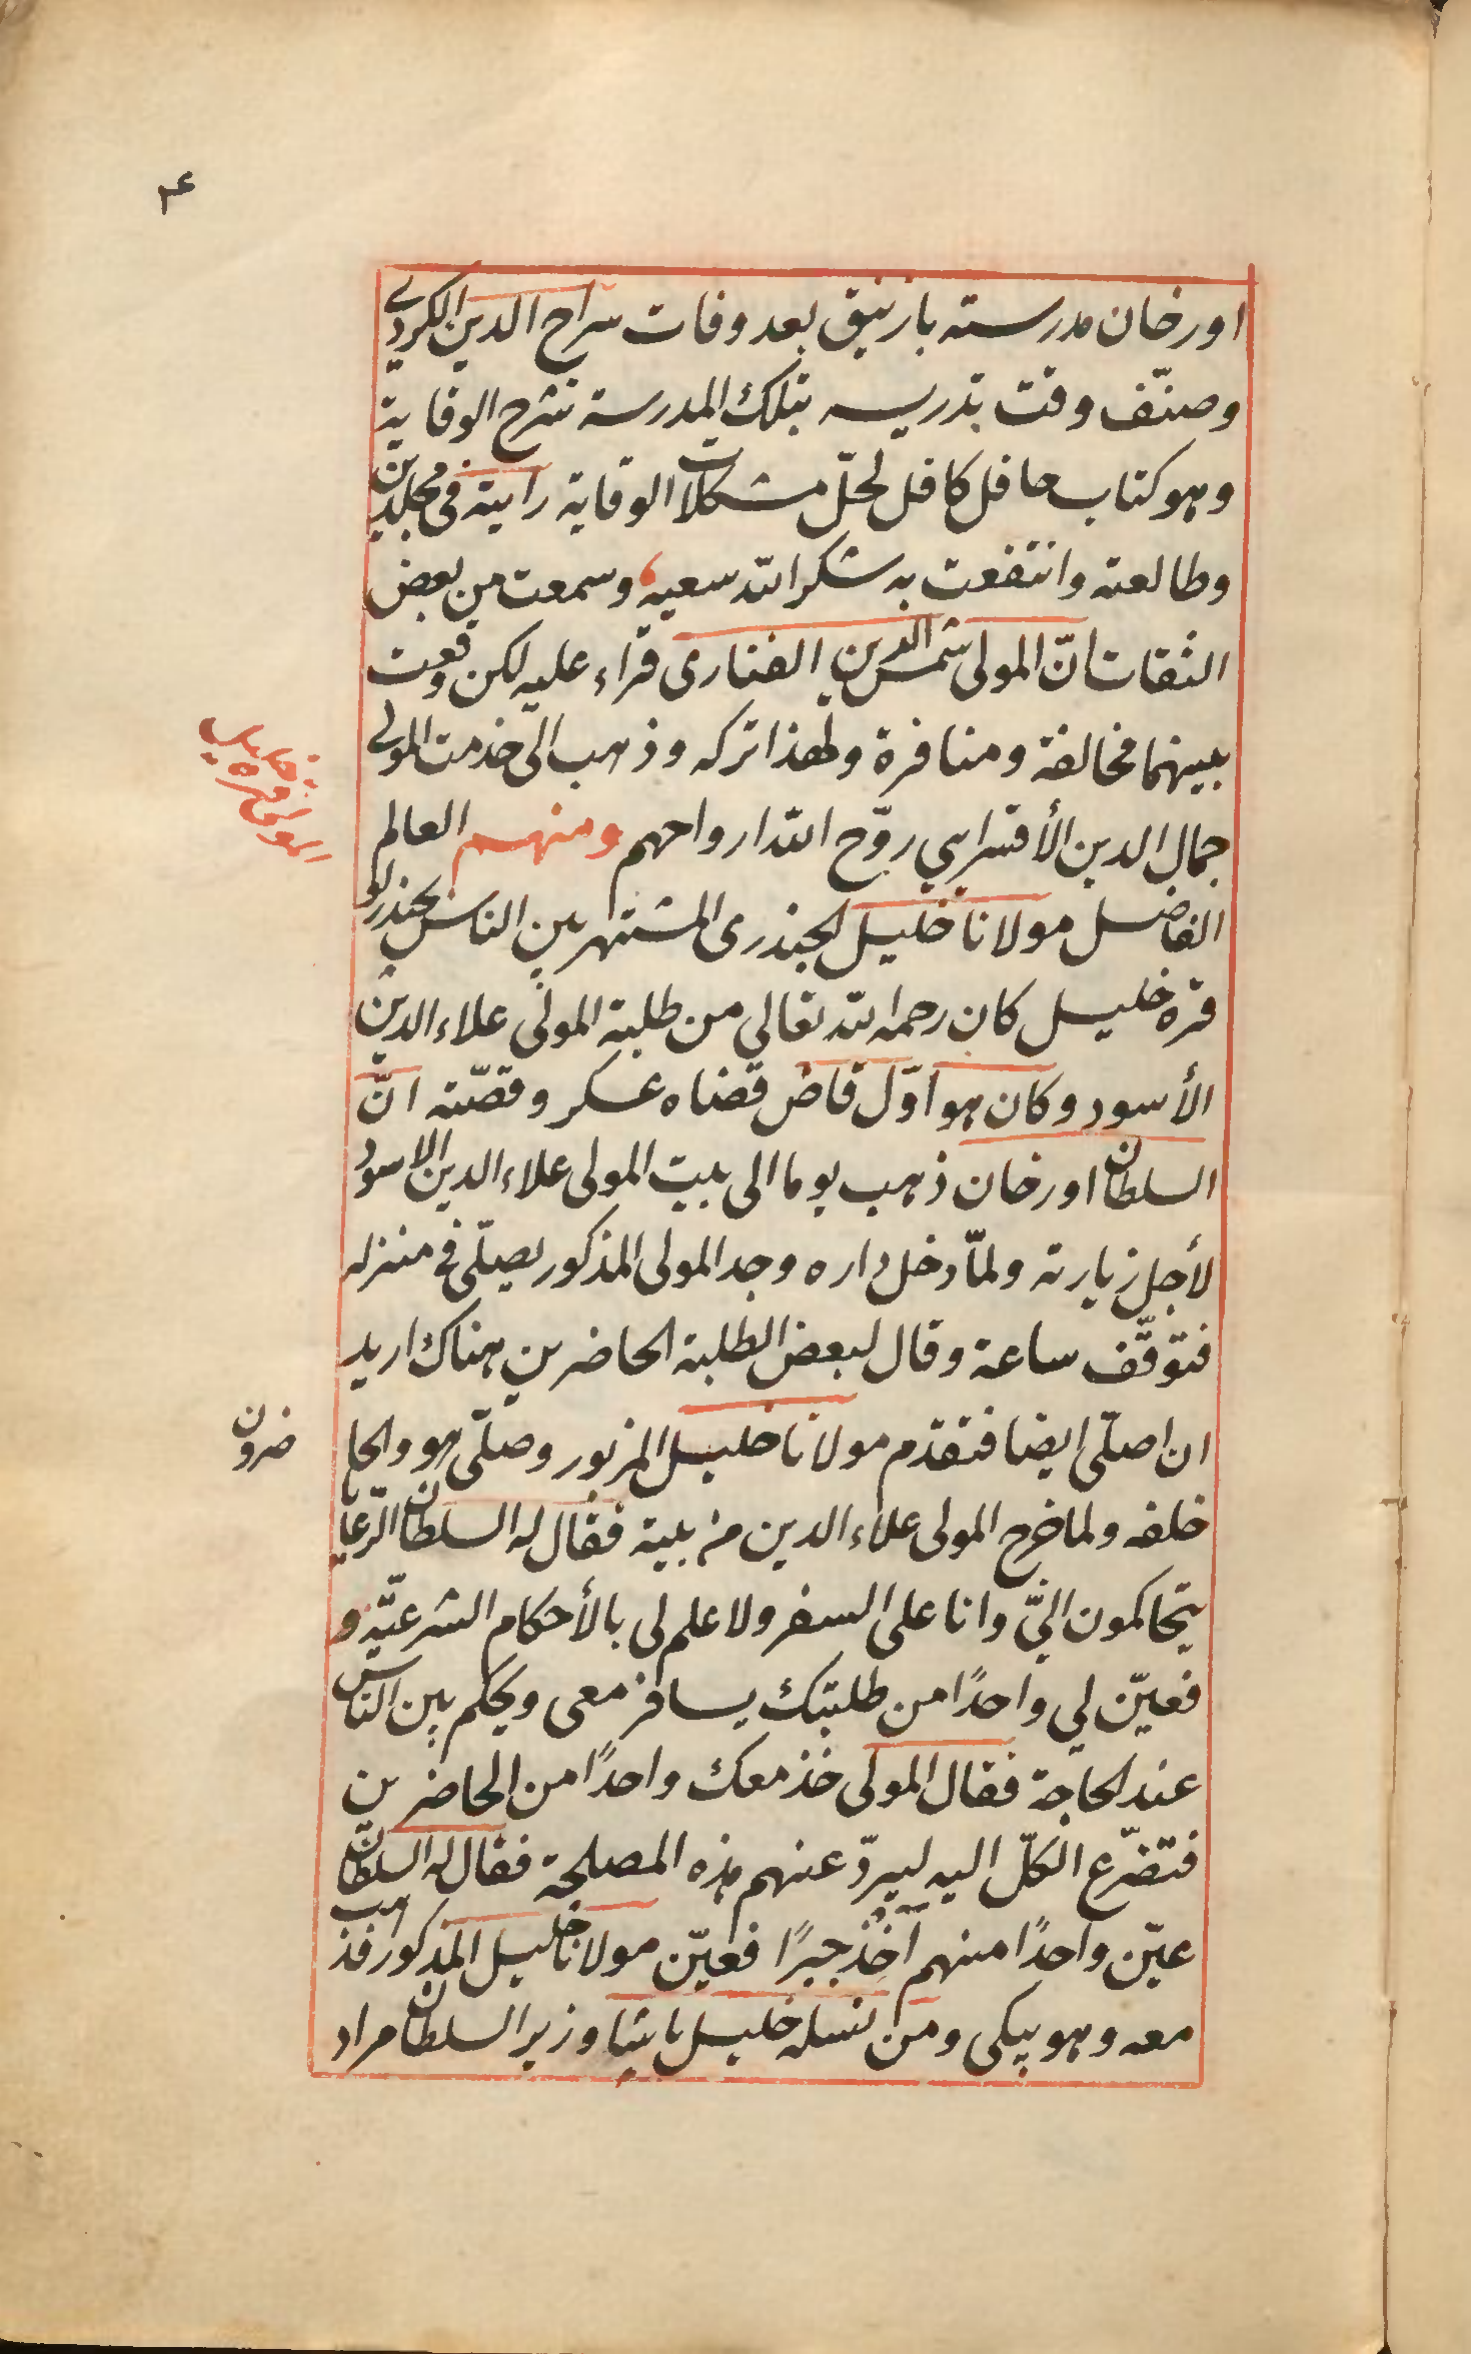 ٤
اورخان مدرسته بازنيق بعد وفات سراج الدين الكردي
وصنّف وقت تدريسه بتلك المدرسة شرح الوقاية
وهو كتاب حافل كافل لحلّ مشكلات الوقاية رايته في مجلدين
وطالعته وانتفعت به شكر الله سعيه، وسمعت من بعض
الثقات انّ المولى شمس الدين الفنارى قراء عليه لكن وقعت
بينهما مخالفة ومنافرة ولهذا تركه وذهب الى خدمت المولى
جمال الدين الأقسرايي روّح الله ارواحهم ومنهم العالم
الفاضل مولانا خليل الجندرى المشتهر بين الناس بجندرلو
قره خليل كان رحمه الله تعالى من طلبة المولى علاء الدين
الأسود وكان هو اوّل قاض قضاه عسكر وقصّته انّ
السلطان اورخان ذهب يوما الى بيت المولى علاء الدين الاسود
لأجل زيارته ولمّا دخل داره وجد المولى المذكور يصلّى في منزله
فتوقّف ساعة وقال لبعض الطلبة الحاضرين هناك اريد
ان اصلّى ايضا فتقدّم مولانا خليل المزبور وصلّى هو والحا
ضرون
خلفه ولما خرج المولى علاء الدين من بيته فقال له السلطان الرّعايا
يتحاكمون اليّ وانا على السفر ولا علم لى بالأحكام الشرعيّة و
فعيّن لي واحدًا من طلبتك يسافر معى ويحكم بين الناس
عند الحاجة فقال المولى خذ معك واحدًا من الحاضرين
فتضرّع الكلّ اليه ليردّ عنهم هذه المصلحة فقال له السلطان
عيّن واحدًا منهم آخذ جبرًا فعيّن مولانا خليل المذكور فذهب
معه وهو يبكى ومن نسله خليل باشا وزير السلطان مراد